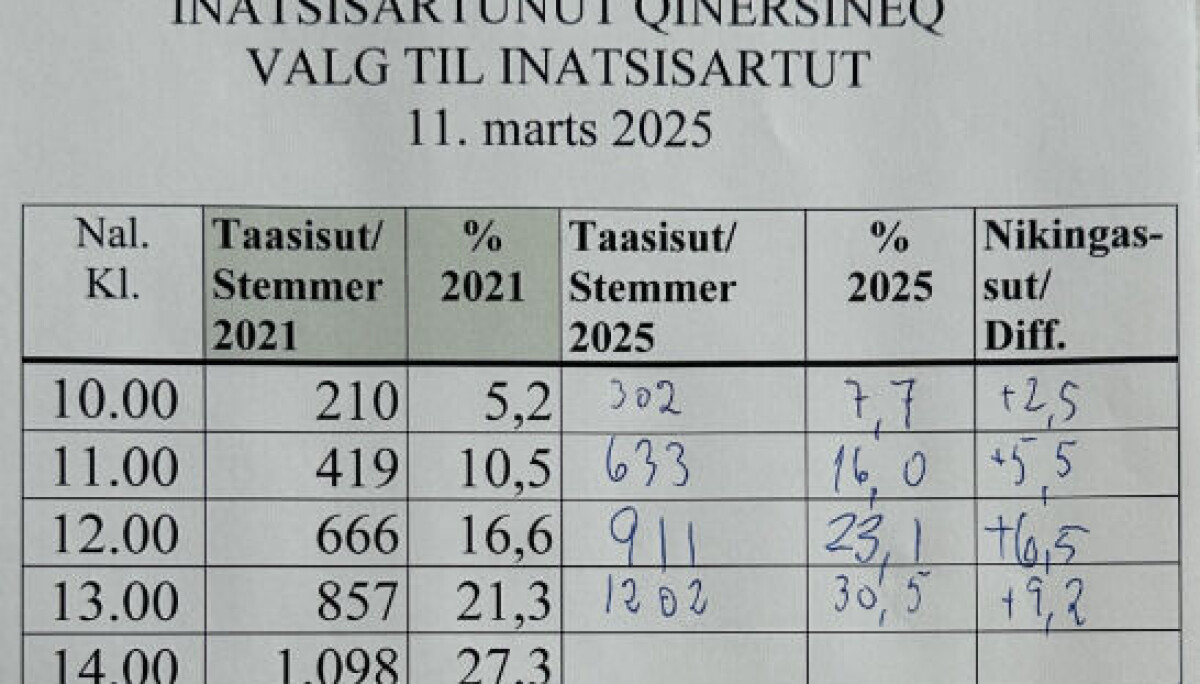 INATSISARTUNUT QINERSINEQ
VALG TIL INATSISARTUT
11. marts 2025
Nal. Kl. Taasisut/ Stemmer 2021 % 2021 Taasisut/ Stemmer 2025 % 2025 Nikingas- sut/ Diff.
10.00 210 5,2 302 7,7 +2,5
11.00 419 10,5 633 16,0 +5,5
12.00 666 16,6 911 23,1 +6,5
13.00 857 21,3 1202 30,5 +9,2
14.00 1.098 27,3